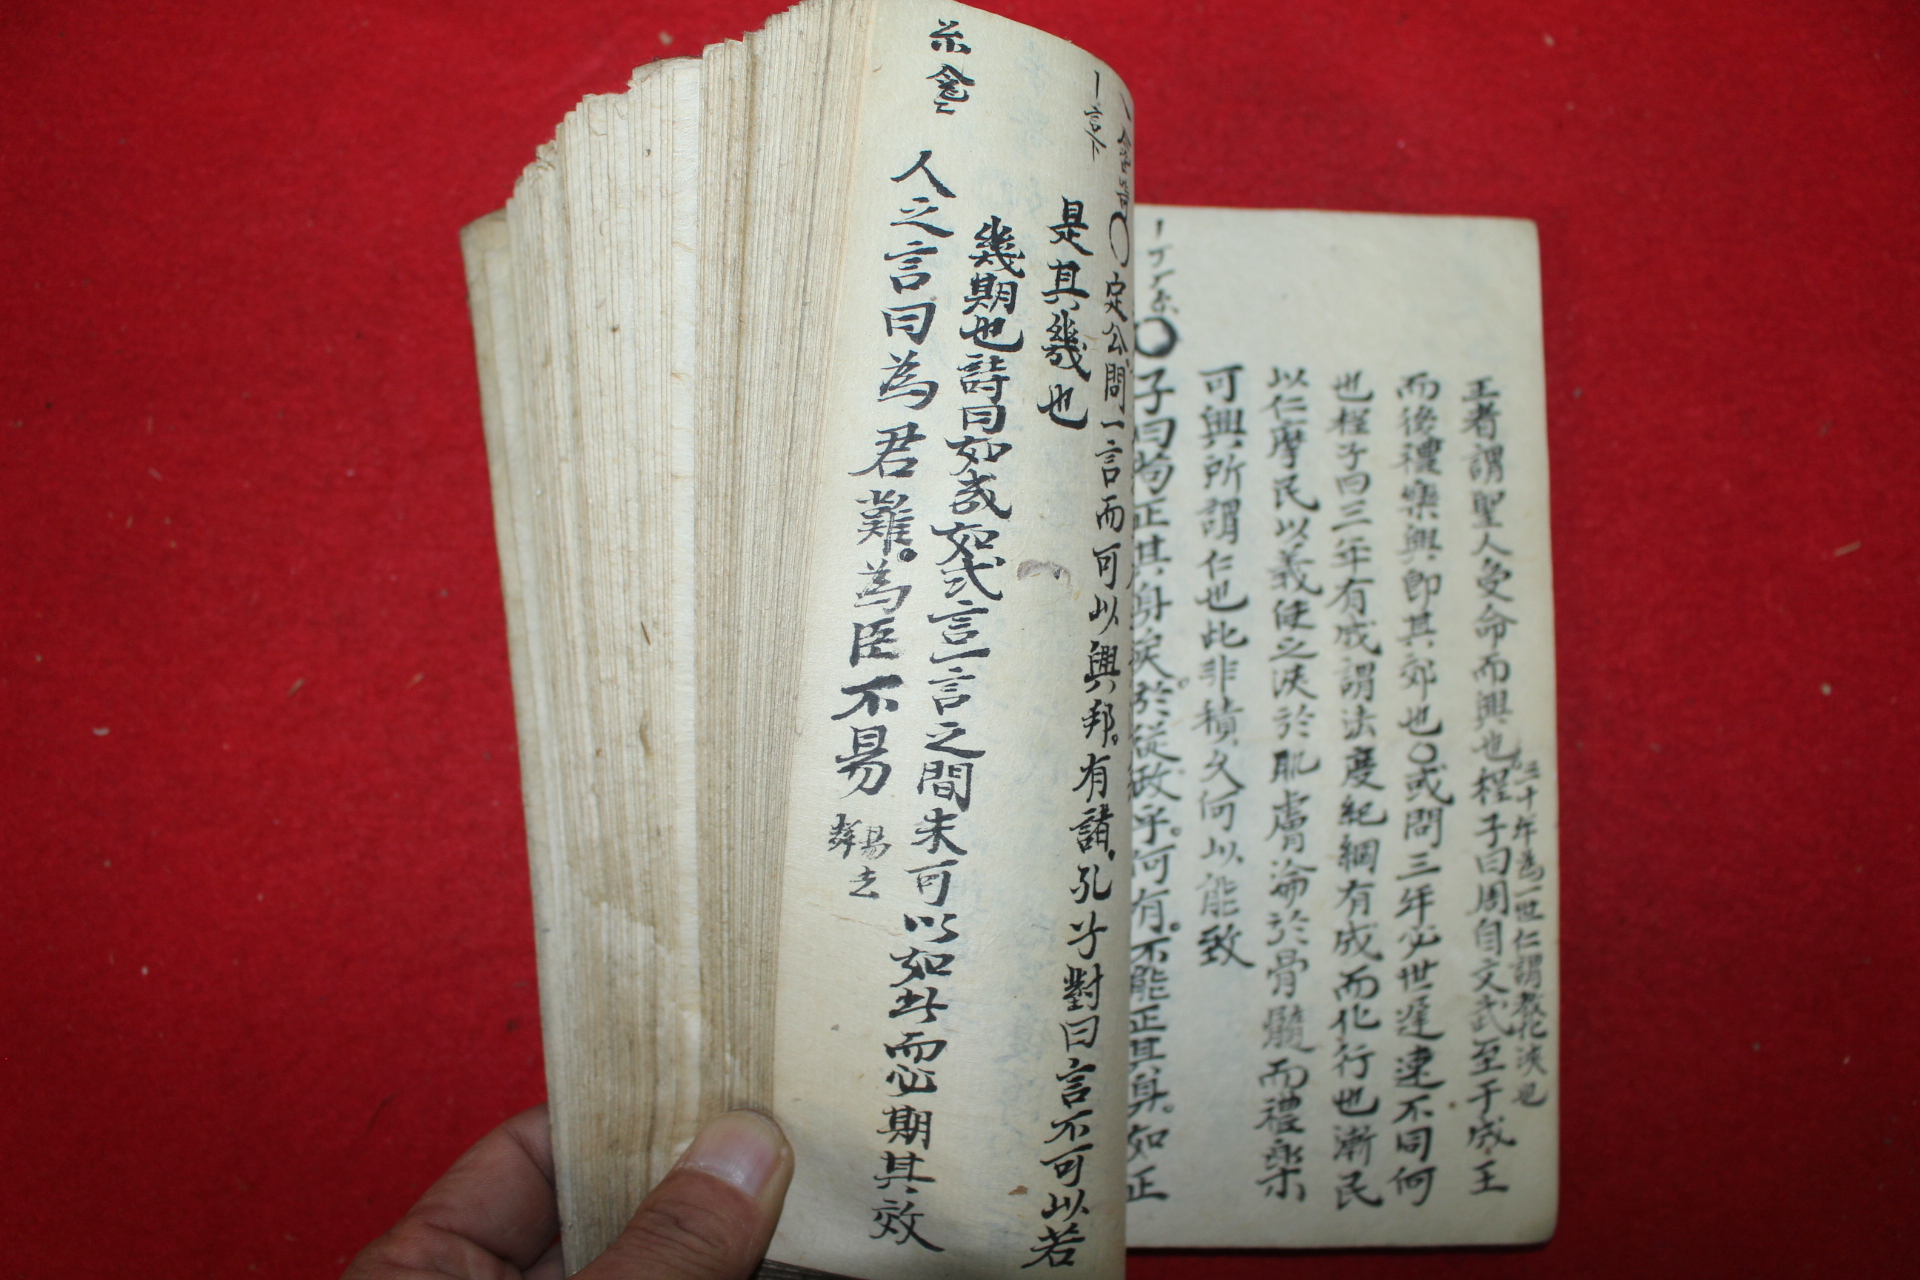 王者謂聖人受命而興也程子曰周自文武至于成王
三十年爲一世仁謂敎化浹也
而後禮樂興卽其效也○或問三年必世遲速不同何
也程子曰三年有成謂法度紀綱有成而化行也漸民
以仁摩民以義使之浹於肌膚淪於骨髓而禮樂
可興所謂仁也此非積久何以能致
○子曰苟正其身矣於從政乎何有不能正其身如正
○定公問一言而可以興邦有諸孔子對曰言不可以若
是其幾也
幾期也詩曰如幾如式言一言之間未可以如此而必期其效
人之言曰為君難為臣不易
易去